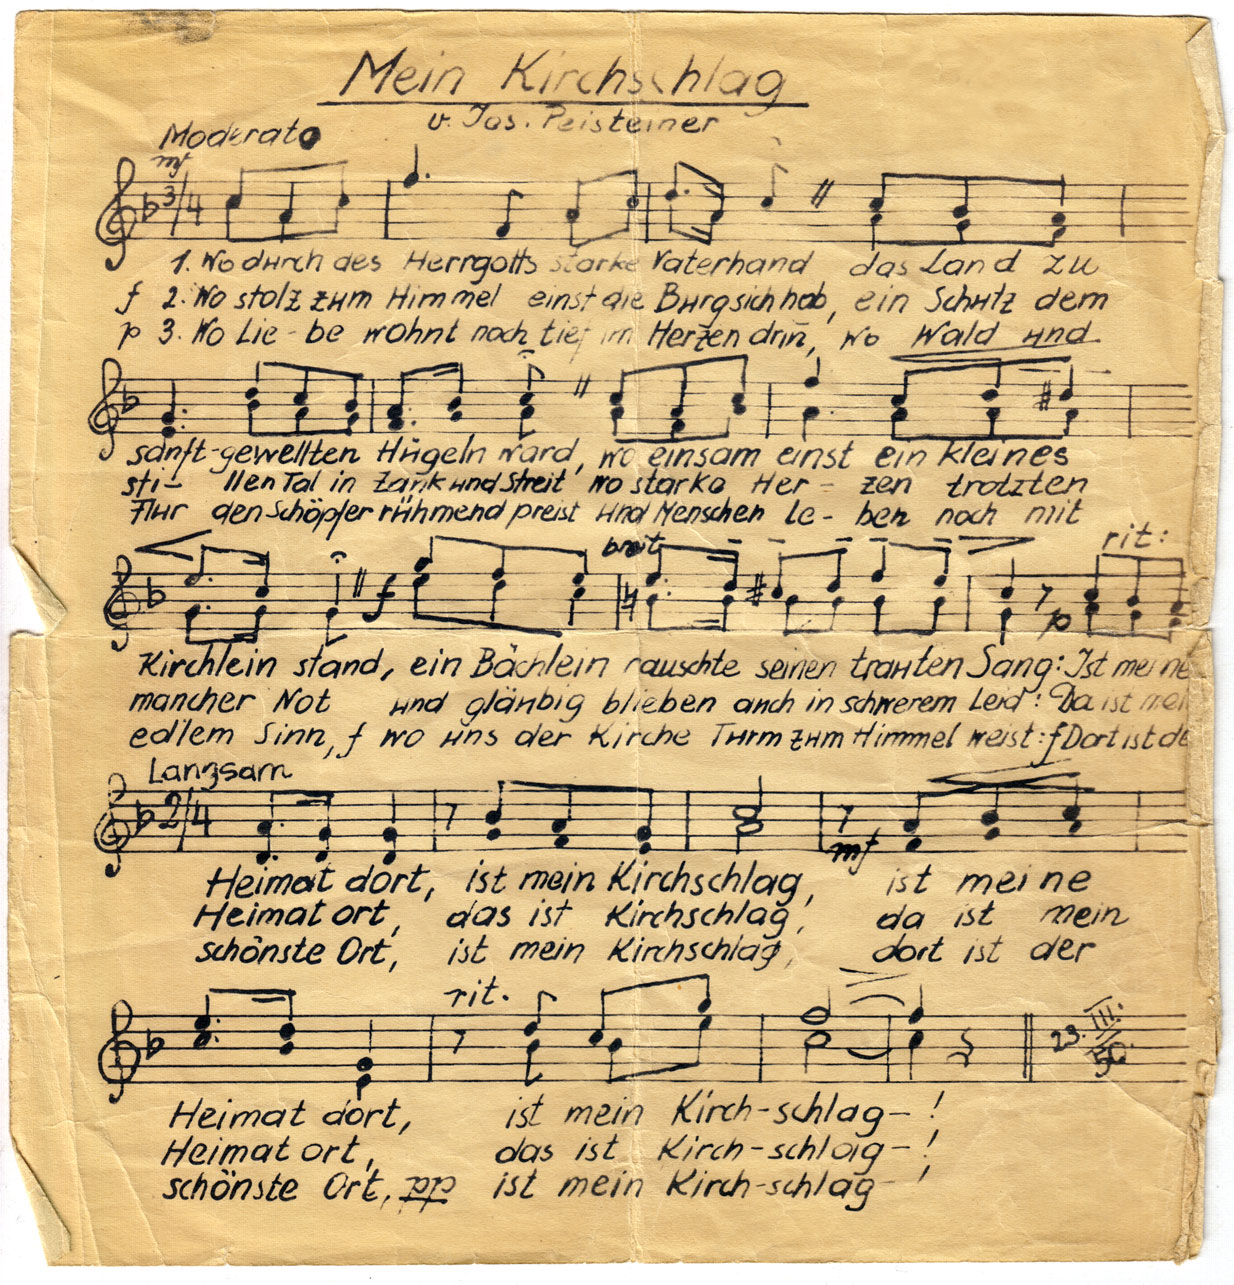 Mein Kirchschlag
v. Jos. Peisteiner
Moderato
mf
3/4
1. Wo durch des Herrgotts starke Vaterhand das Land zu
f 2. Wo stolz zum Himmel einst die Burg sich hob, ein Schutz dem
p 3. Wo Lie-be wohnt noch tief im Herzen drin, wo Wald und
sanft-gewellten Hügeln ward, wo einsam einst ein kleines
sti- llen Tal in Zank und Streit wo starke Her- zen trotzten
Flur den Schöpfer rühmend preist und Menschen le- ben noch mit
breit rit:
f p
Kirchlein stand, ein Bächlein rauschte seinen trauten Sang: Ist meine
mancher Not und gläubig blieben auch in schwerem Leid: Da ist mein
edlem Sinn, f wo uns der Kirche Turm zum Himmel weist: f Dort ist de
Langsam
2/4
mf
Heimat dort, ist mein Kirchschlag, ist meine
Heimat ort, das ist Kirchschlag, da ist mein
schönste Ort, ist mein Kirchschlag, dort ist der
rit.
23. III. 50.
Heimat dort, ist mein Kirch-schlag-!
Heimat ort, das ist Kirch-schlag-!
schönste Ort, pp ist mein Kirch-schlag-!